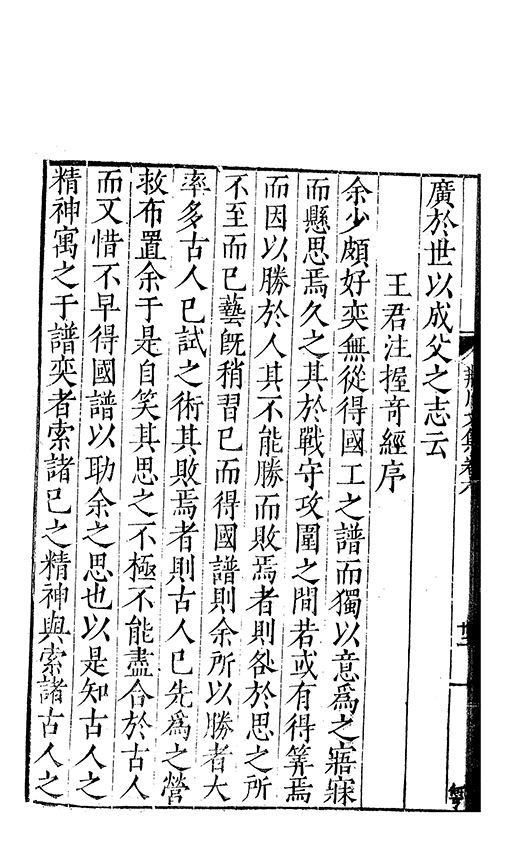 廣於世以成父之志云
王君注握奇經序
余少頗好奕無從得國工之譜而獨以意爲之寤寐
而懸思焉久之其於戰守攻圍之間若或有得筭焉
而因以勝於人其不能勝而敗焉者則咎於思之所
不至而已藝旣稍習已而得國譜則余所以勝者大
率多古人已試之術其敗焉者則古人已先爲之營
救布置余于是自笑其思之不極不能盡合於古人
而又惜不早得國譜以助余之思也以是知古人之
精神寓之于譜奕者索諸已之精神與索諸古人之